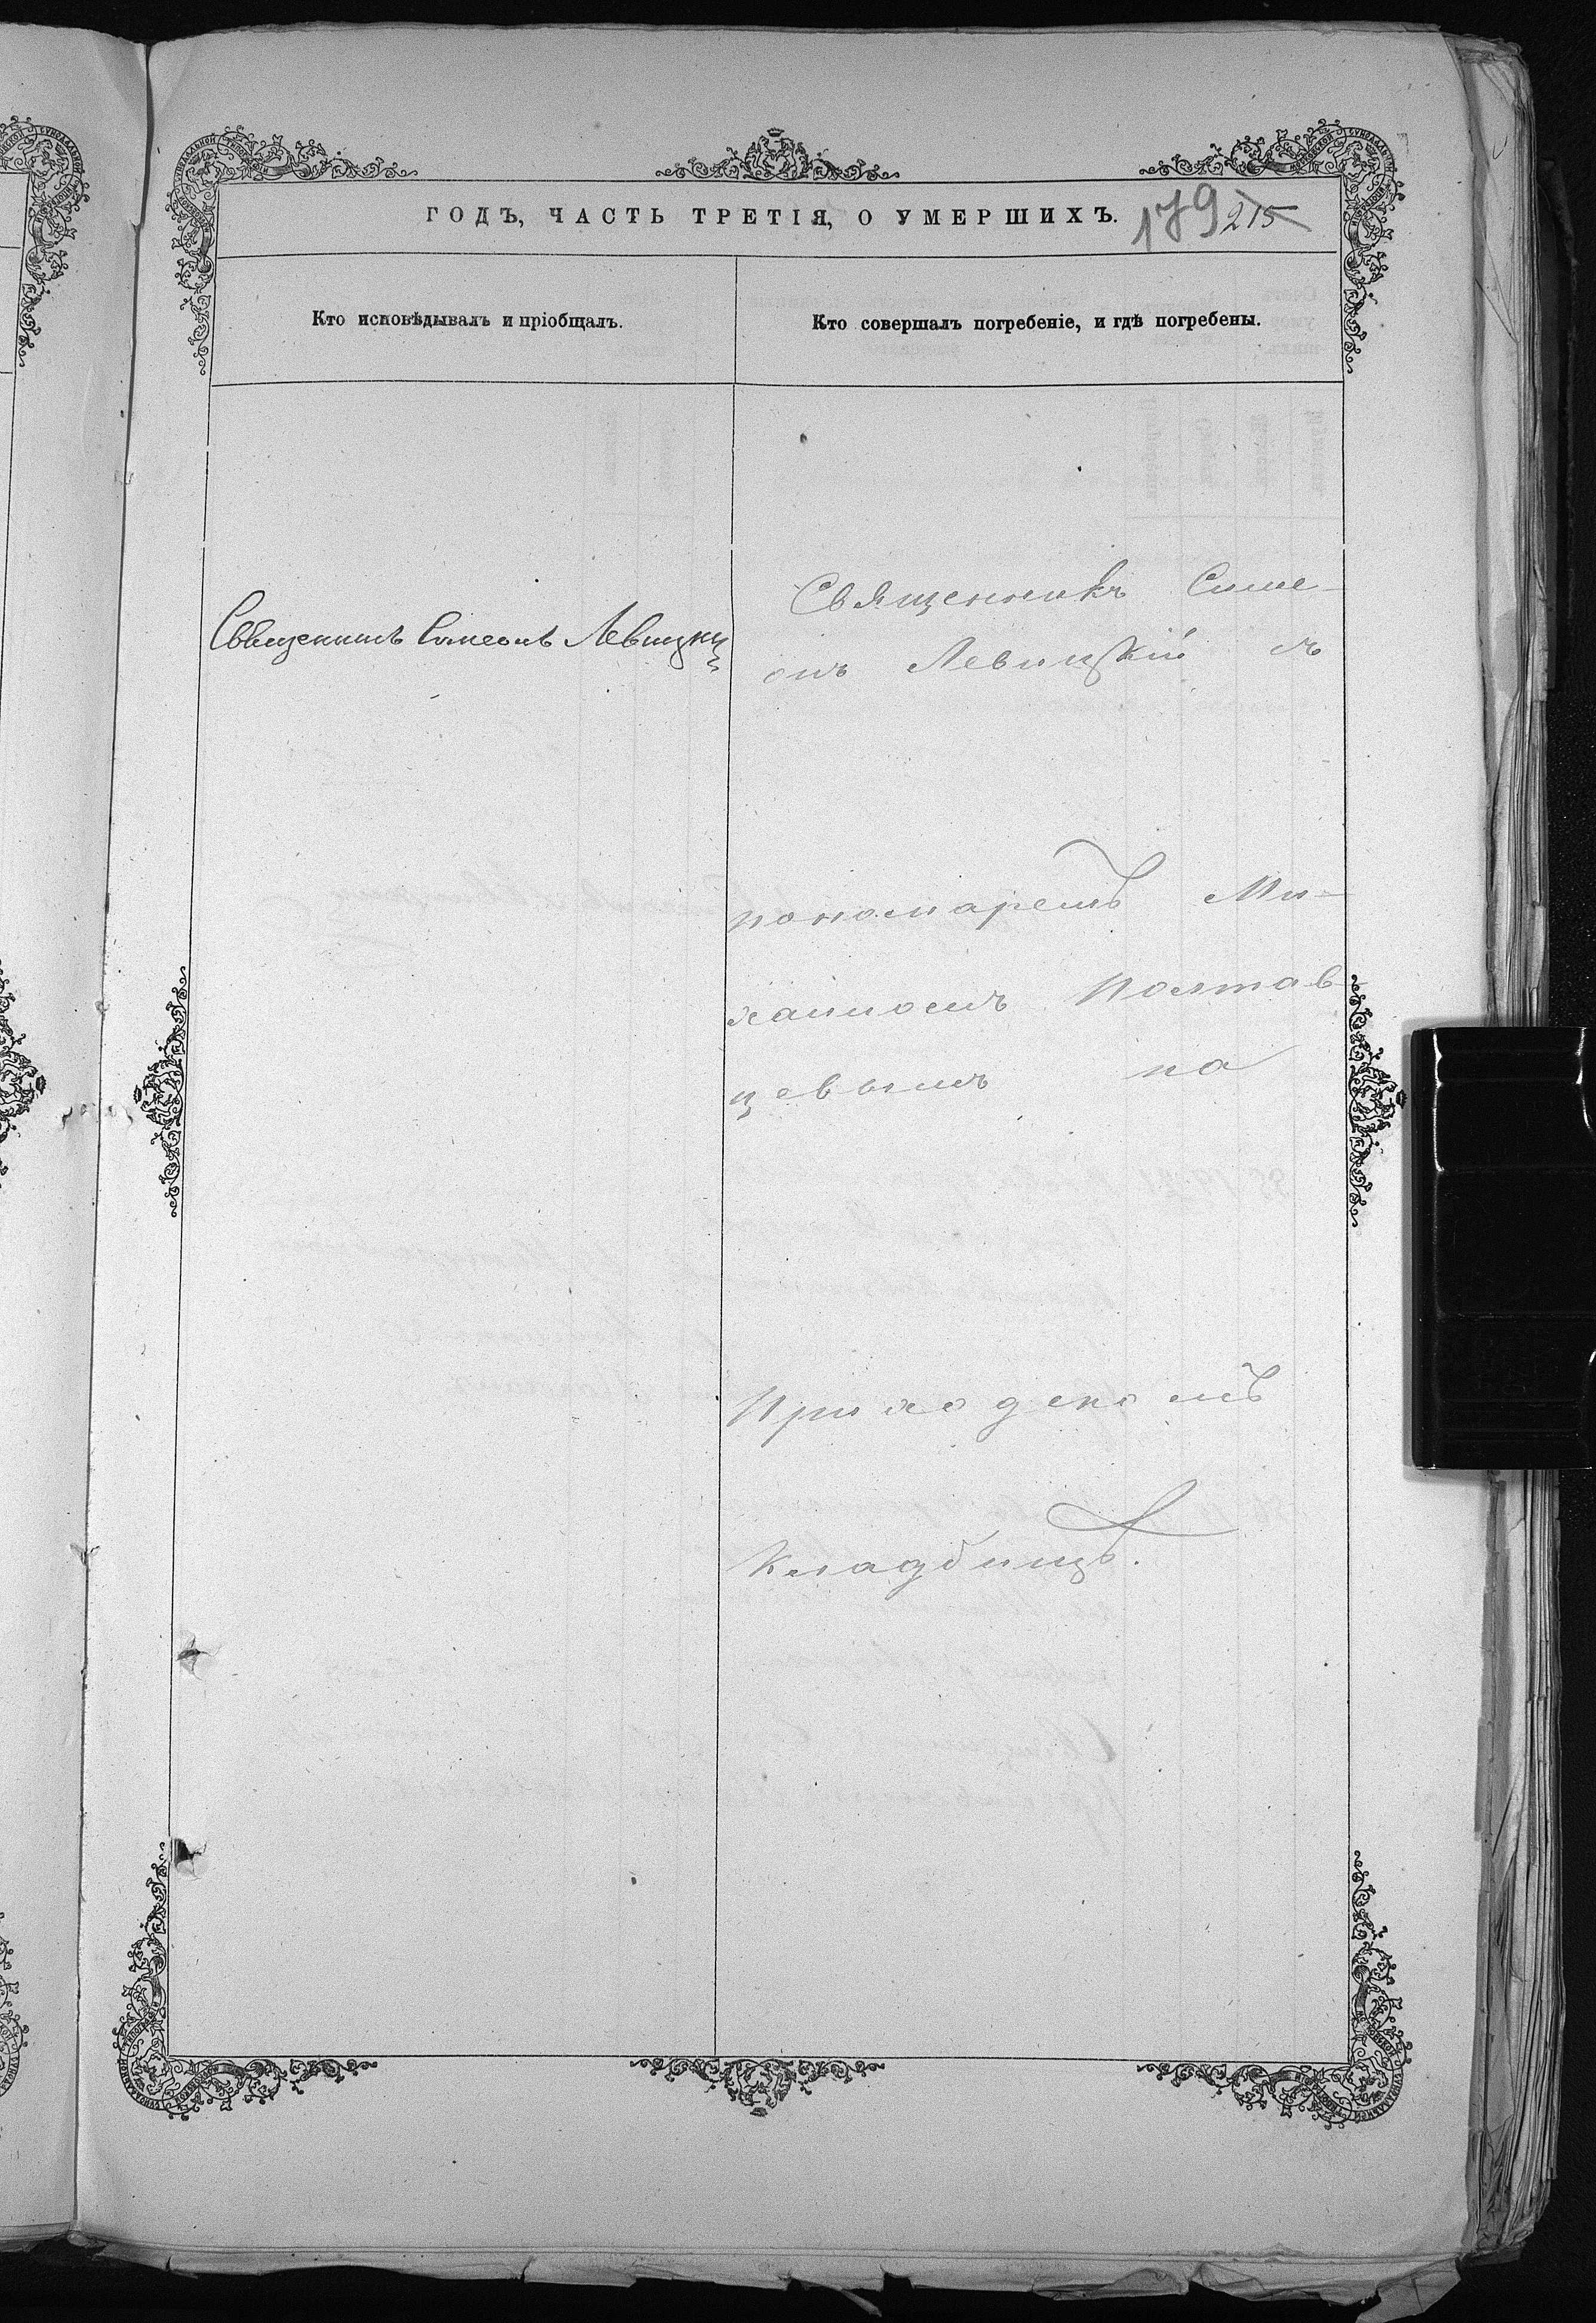 ГОДЪ, ЧАСТЬ ТРЕТІЯ, О УМЕРШИХЪ.
179 215
Кто исповѣдывалъ и пріобщалъ.
Кто совершалъ погребеніе, и гдѣ погребены.
Священникъ Симеонъ Левицкій
Священникъ Симе-
онъ Левицкій съ
пономаремъ Ми-
хаиломъ Полтав-
цевымъ на
Приходскомъ
Кладбищѣ.